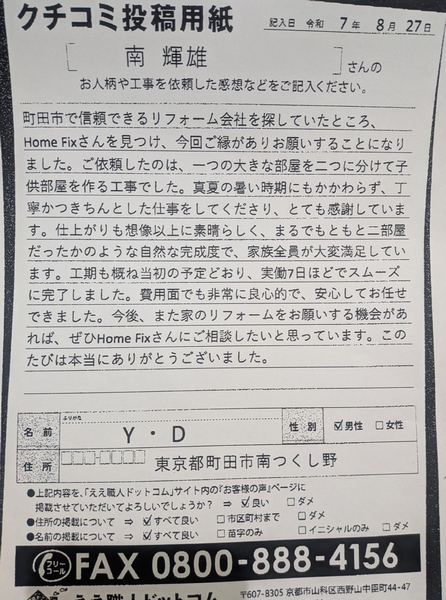 クチコミ投稿用紙
記入日 令和 7年 8月 27日
南 輝雄 さんの
お人柄や工事を依頼した感想などをご記入ください。
町田市で信頼できるリフォーム会社を探していたところ、
Home Fixさんを見つけ、今回ご縁がありお願いすることになり
ました。ご依頼したのは、一つの大きな部屋を二つに分けて子
供部屋を作る工事でした。真夏の暑い時期にもかかわらず、丁
寧かつきちんとした仕事をしてくださり、とても感謝していま
す。仕上がりも想像以上に素晴らしく、まるでもともと二部屋
だったかのような自然な完成度で、家族全員が大変満足してい
ます。工期も概ね当初の予定どおり、実働7日ほどでスムーズ
に完了しました。費用面でも非常に良心的で、安心してお任せ
できました。今後、また家のリフォームをお願いする機会があ
れば、ぜひHome Fixさんにご相談したいと思っています。この
たびは本当にありがとうございました。
ふりがな
名前 Y・D 性別 ☑男性 □女性
住所 □□□-□□□□ 東京都町田市南つくし野
●上記内容を、「ええ職人ドットコム」サイト内の『お客様の声』ページに
掲載させていただいてよろしいでしょうか? ⇒ ☑良い □ダメ
●住所の掲載について ⇒ ☑すべて良い □市区町村まで □ダメ
●名前の掲載について ⇒ ☑すべて良い □苗字のみ □イニシャルのみ □ダメ
フリーコール FAX 0800-888-4156
ええ職人ドットコム 〒607-8305 京都市山科区西野山中臣町44-47